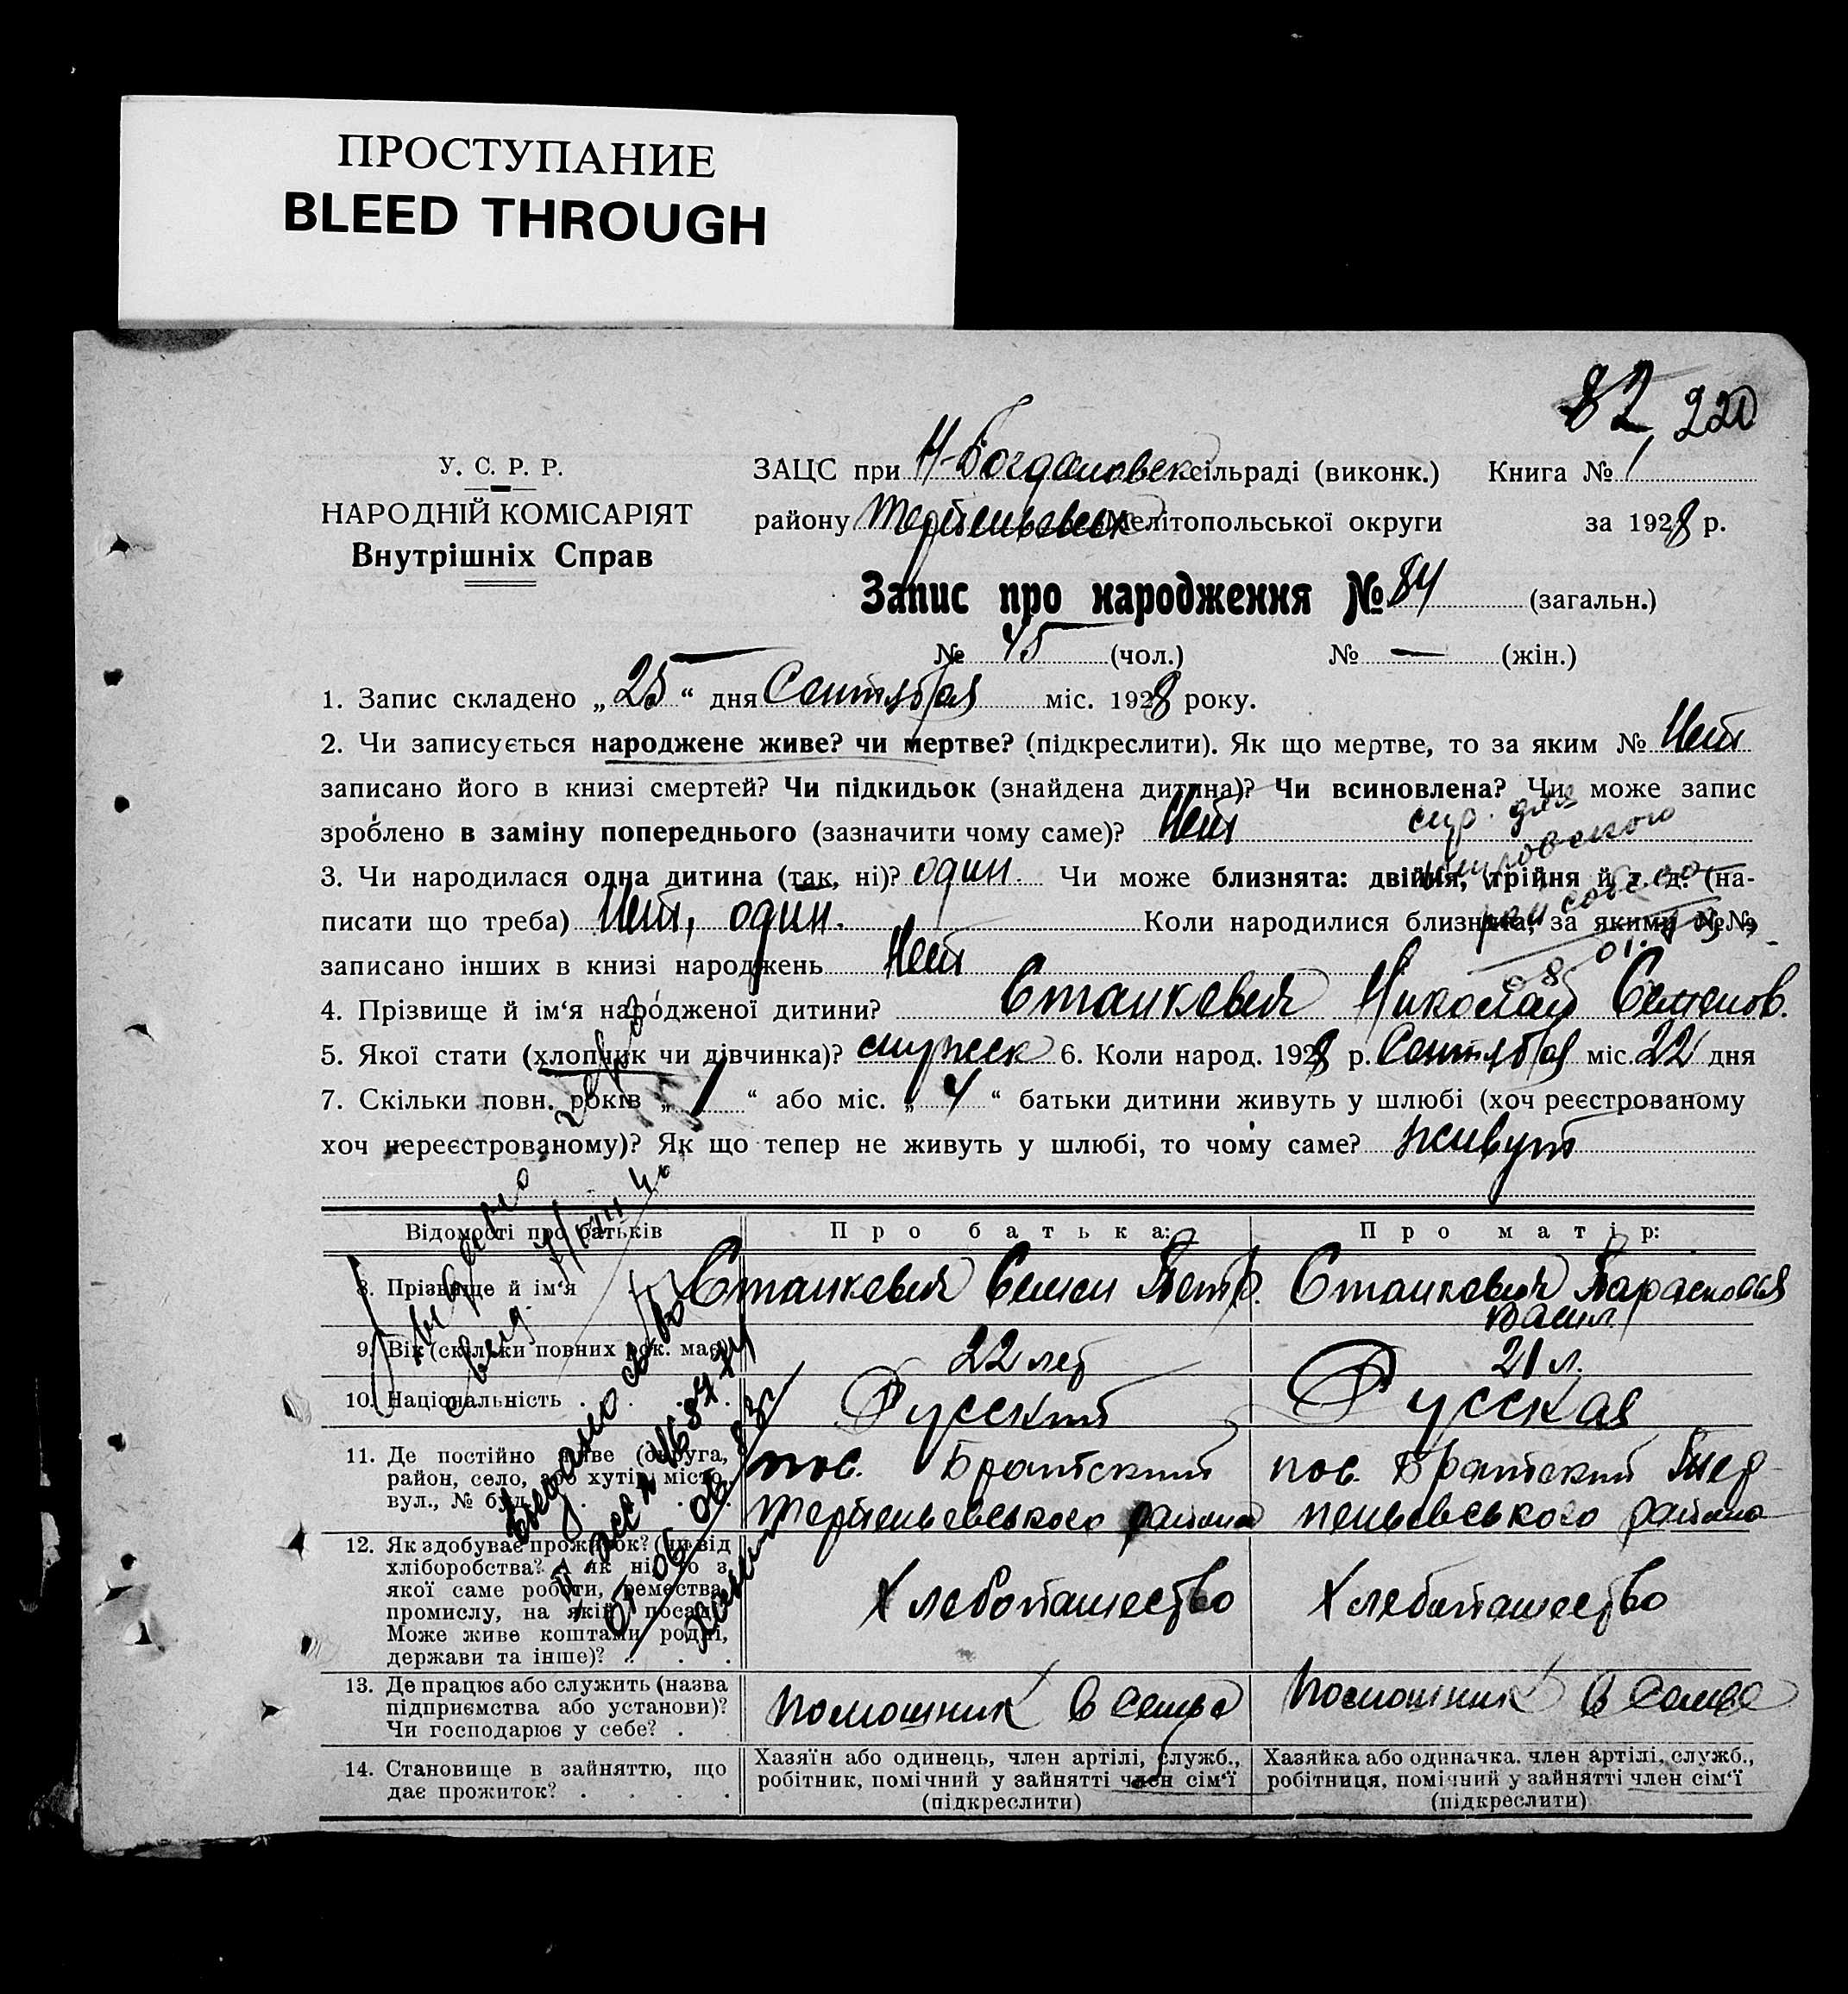 ПРОСТУПАНИЕ
BLEED THROUGH
82, 220
У. С. Р. Р.
НАРОДНІЙ КОМІСАРІЯТ
Внутрішніх Справ
ЗАЦС при Н-Богдановск сільраді (виконк.) Книга № 1
району Терпеньевск Мелітопольської округи за 1928 р.
Запис про народження № 84 (загальн.)
№ 45 (чол.) № — (жін.)
1. Запис складено „25“ дня Сентября міс. 1928 року.
2. Чи записується народжене живе? чи мертве? (підкреслити). Як що мертве, то за яким № Нет
записано його в книзі смертей? Чи підкидьок (знайдена дитина)? Чи всиновлена? Чи може запис
зроблено в заміну попереднього (зазначити чому саме)? Нет
3. Чи народилася одна дитина (так, ні)? один. Чи може близнята: двійня, трійня й т. д. (на-
писати що треба) Нет, один. Коли народилися близнята, за якими №№
записано інших в книзі народжень Нет
4. Прізвище й ім‘я народженої дитини? Станкевич Николай Семенов.
5. Якої стати (хлопчик чи дівчинка)? мужск 6. Коли народ. 1928 р. Сентября міс. 22 дня
7. Скільки повн. років „1“ або міс. „4“ батьки дитини живуть у шлюбі (хоч реєстрованому
хоч нереєстрованому)? Як що тепер не живуть у шлюбі, то чому саме? живут
Відомості про батьків Про батька: Про матір:
8. Прізвище й ім‘я Станкевич Семен Петр. Станкевич Парасковья
Васил.
9. Вік (скільки повних рок. має) 22 лет 21 л.
10. Національність . . . . Русский Русская
11. Де постійно живе (округа,
район, село, або хутір, місто,
вул., № буд.) . . . .
пос. Братский
Терпеньевського района
пос. Братский Тер-
пеньевського района
12. Як здобуває прожиток? (чи від
хліборобства? А як ні, то з
якої саме роботи, ремества,
промислу, на якій посаді?
Може живе коштами родні,
держави та інше)? . . .
Хлебопашество Хлебопашество
13. Де працює або служить (назва
підприємства або установи)?
Чи господарює у себе? . .
Помошник в семье Помошник в семье
14. Становище в зайняттю, що
дає прожиток? . . . .
Хазяїн або одинець, член артілі, служб.,
робітник, помічний у зайнятті член сім‘ї
(підкреслити)
Хазяйка або одиначка, член артілі, служб.,
робітниця, помічний у зайнятті член сім‘ї
(підкреслити)